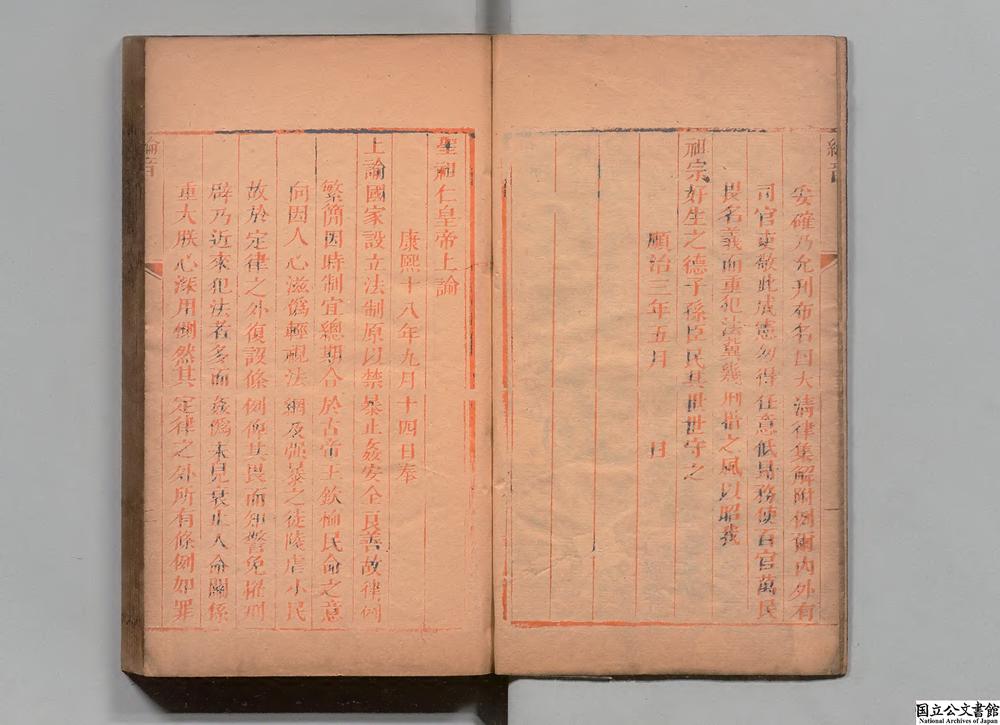 綸音
妥確乃允刊布名曰大清律集解附例爾內外有
司官吏敬此成憲勿得任意低昂務使百官萬民
畏名義而重犯法冀幾刑措之風以昭我
祖宗好生之德子孫臣民其世世守之
順治三年五月 日
聖祖仁皇帝上諭
康熙十八年九月十四日奉
上諭國家設立法制原以禁暴止姦安全良善故律例
繁簡因時制宜總期合於古帝王欽恤民命之意
向因人心滋僞輕視法網及強暴之徒陵虐小民
故於定律之外復設條例俾其畏而知警免罹刑
辟乃近來犯法者多而姦僞未見衰止人命關係
重大朕心深用惻然其定律之外所有條例如罪
綸音
国立公文書館
National Archives of Japan